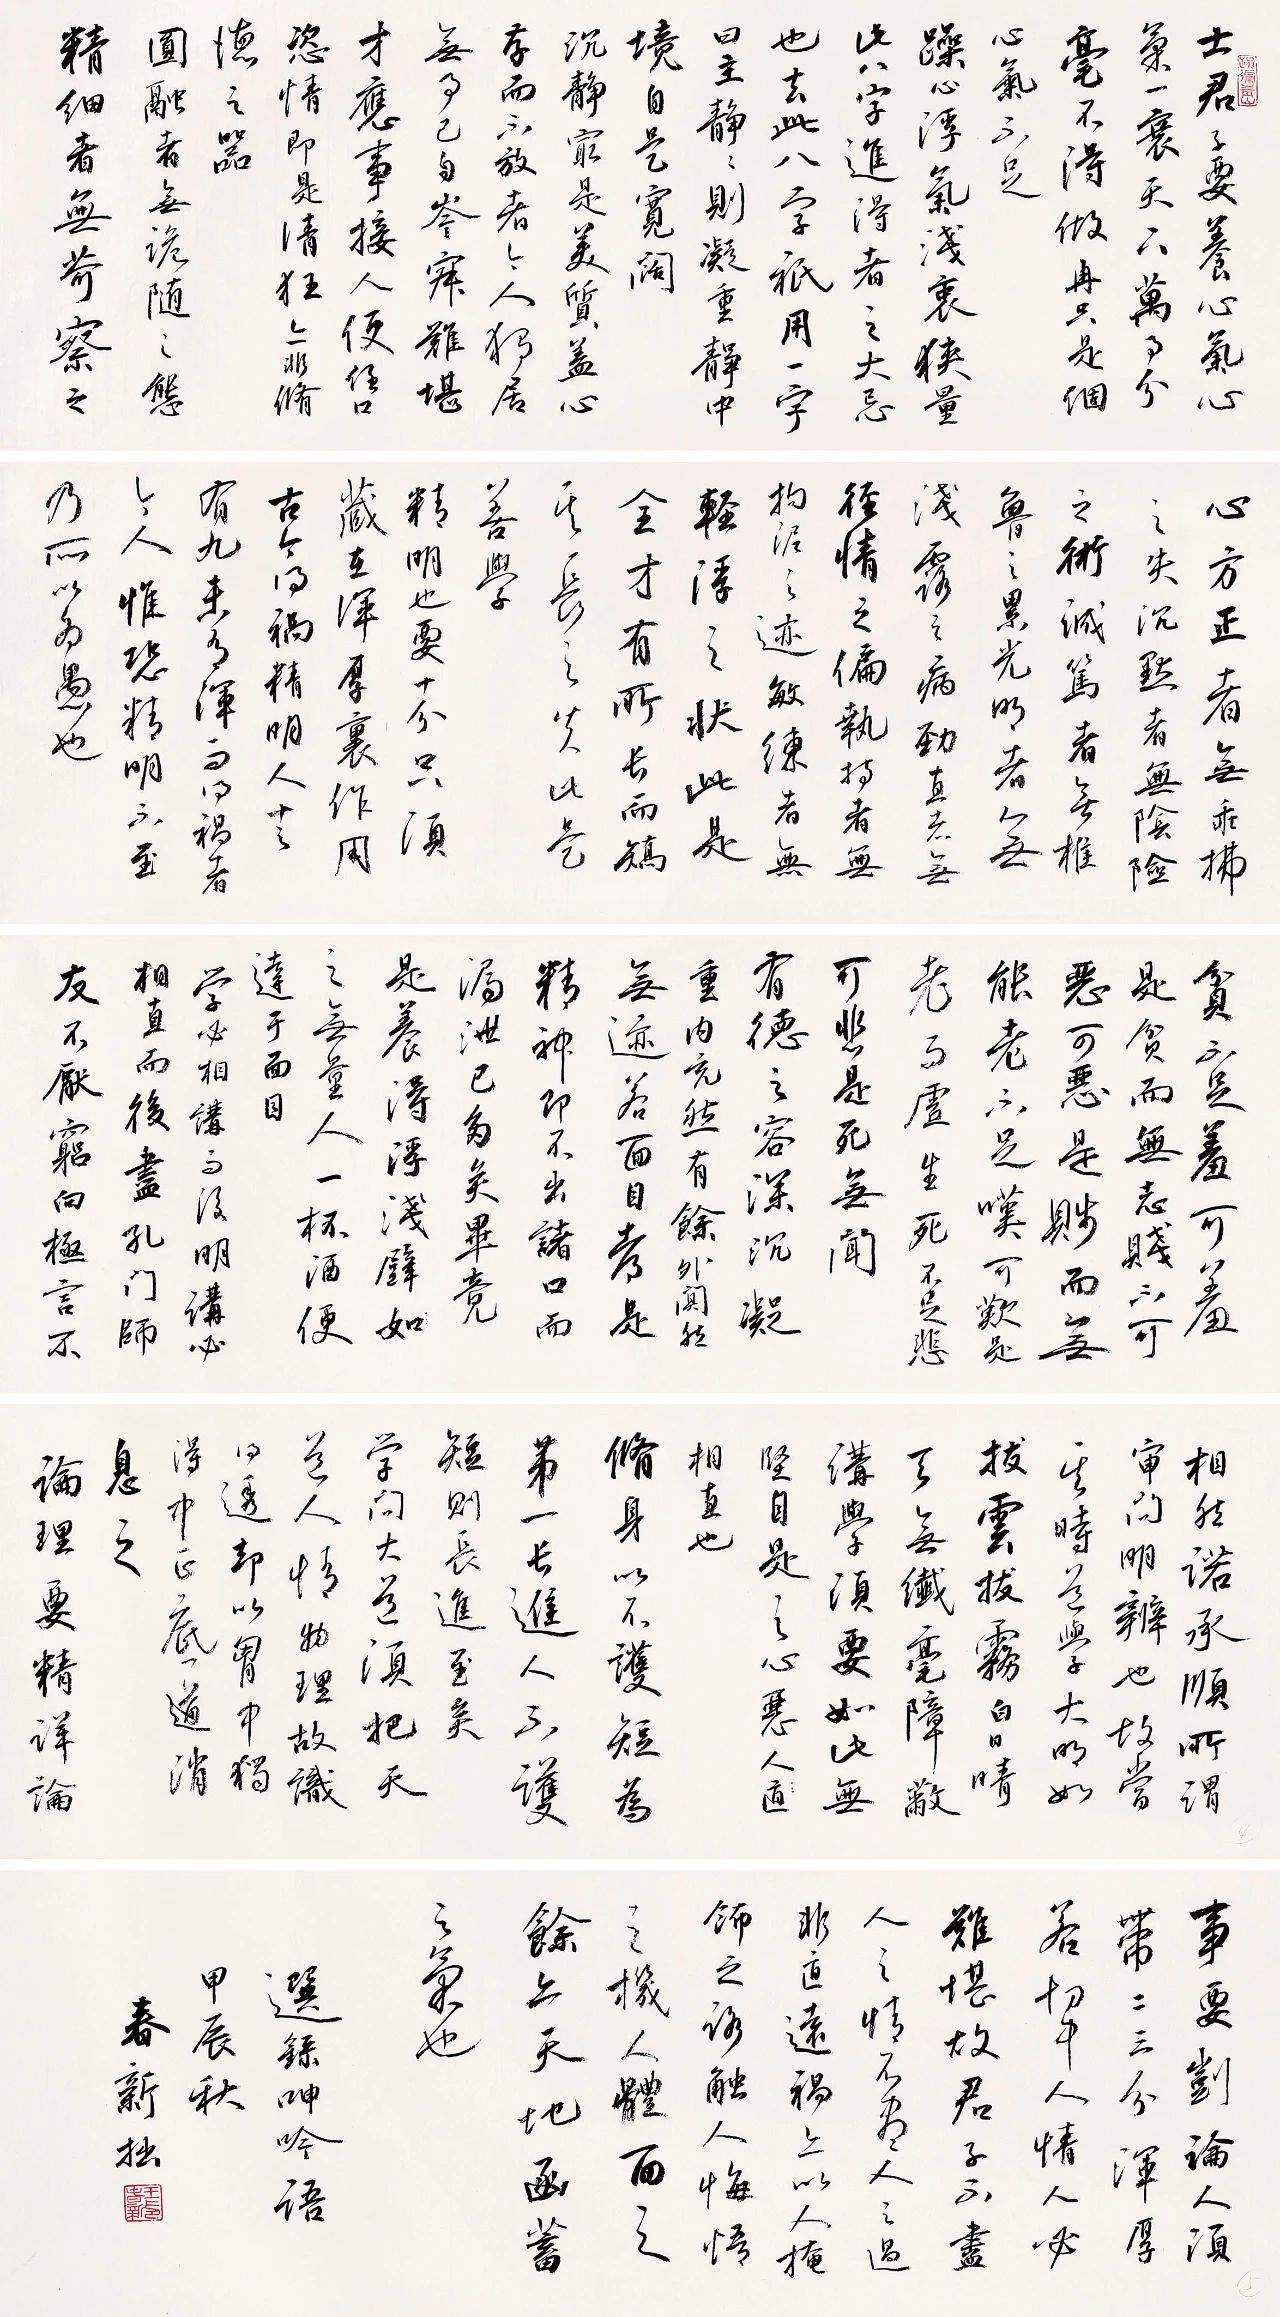 士君子要養心氣心
氣一衰天下萬事分
毫不得做冉只是個
心氣不足
躁心浮氣淺衷狹量
此八字進得者之大忌
也去此八字祇用一字
曰主静々則凝重靜中
境自是寬闊
沉靜最是美質蓋心
存而不放者今人獨居
無事已自岑寂難堪
才應事接人便任口
恣情即是清狂亦非脩
德之器
圓融者無詭随之態
精細者無苛察之
心方正者無乖拂
之失沉默者無陰險
之術誠篤者無椎
魯之累光明者無
淺露之病勁直者無
徑情之偏執持者無
拘泥之迹敏練者無
輕浮之狀此是
全才有所長而矯
其長之失此是
善學
精明也要十分只須
藏在渾厚裏作用
古今得禍精明人十之
有九未有渾而得禍者
今人惟恐精明不至
乃所以為愚也
貧不足羞可羞
是貧而無志賤不可
惡可惡是賤而無
能老不足嘆可歎是
老而虛生死不足悲
可悲是死無聞
有德之容深沉凝
重内充然有餘外闃然
無迹若面目都是
精神即不出諸口而
漏泄已多矣畢竟
是養得浮淺譬如
之無量人一杯酒便
達于面目
学必相講而後明講必
相直而後盡孔门師
友不厭窮问極言不
相然諾承順所謂
审问明辨也故當
其時道學大明如
拔雲拔霧白日晴
天無纖毫障蔽
講學須要如此無
堅自是之心惡人直
相直也
脩身以不護短為
第一長進人不護
短則長進至矣
学问大道須把天
道人情物理故識
得透却以胷中獨
得中正底道消
息之
論理要精詳論
事要剴論人須
帶二三分渾厚
若切中人情人必
難堪故君子不盡
人之情不盡人之過
非直遠禍亦以人掩
飾之路觸人悔悟
之機人體面之
餘亦天地涵蓄
之氣也
選錄呻吟語
甲辰秋
春新拙